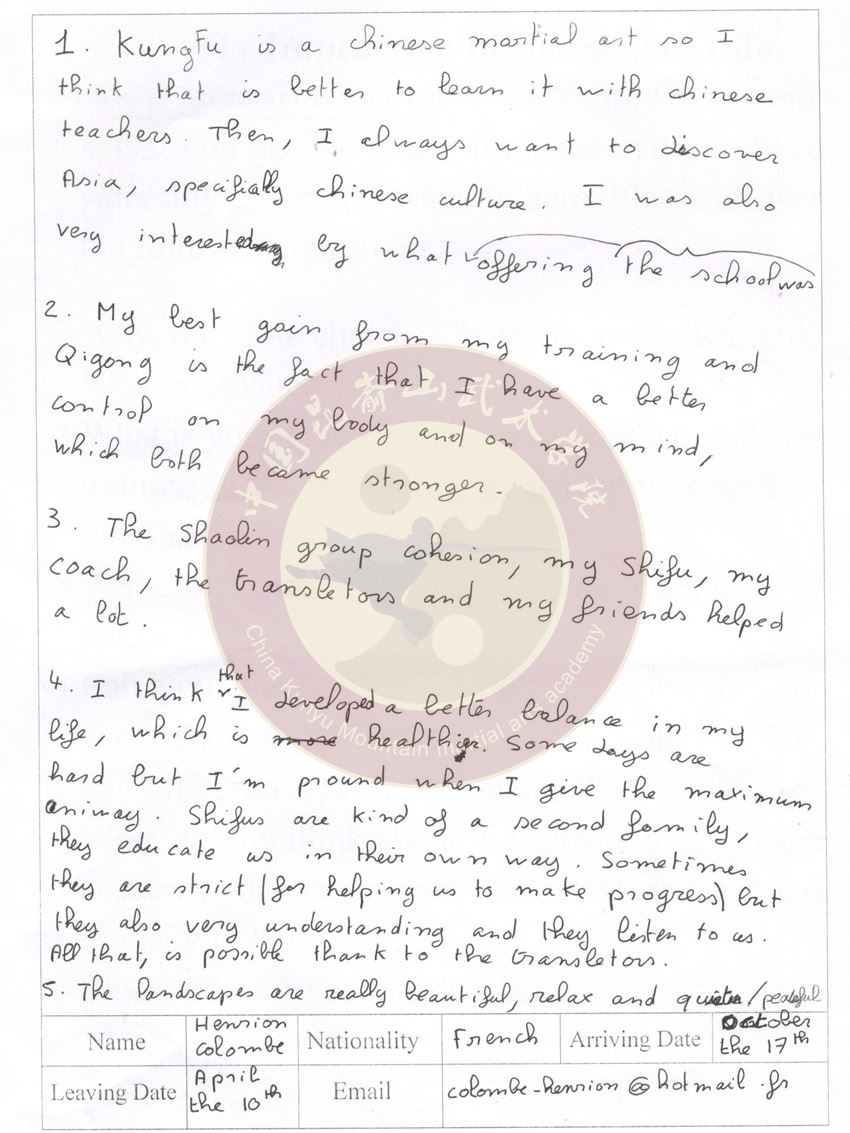 1. KungFu is a chinese martial art so I
think that is better to learn it with chinese
teachers. Then, I always want to discover
Asia, specifially chinese culture. I was also
very interested by what offering the school was
2. My best gain from my training and
Qigong is the fact that I have a better
control on my body and on my mind,
which both became stronger.
3. The Shaolin group cohesion, my Shifu, my
coach, the transletors and my friends helped
a lot.
4. I think that I developed a better balance in my
life, which is more healthier. Some days are
hard but I'm pround when I give the maximum
aniway. Shifus are kind of a second family,
they educate us in their own way. Sometimes
they are strict (for helping us to make progress) but
they also very understanding and they listen to us.
All that, is possible thank to the transletors.
5. The landscapes are really beautiful, relax and /peaceful
Name Henrion colombe Nationality French Arriving Date October the 17th
Leaving Date April the 10th Email colombe-henrion@hotmail.fr
中国昆嵛山武术学院
China Kunyu Mountain martial arts academy